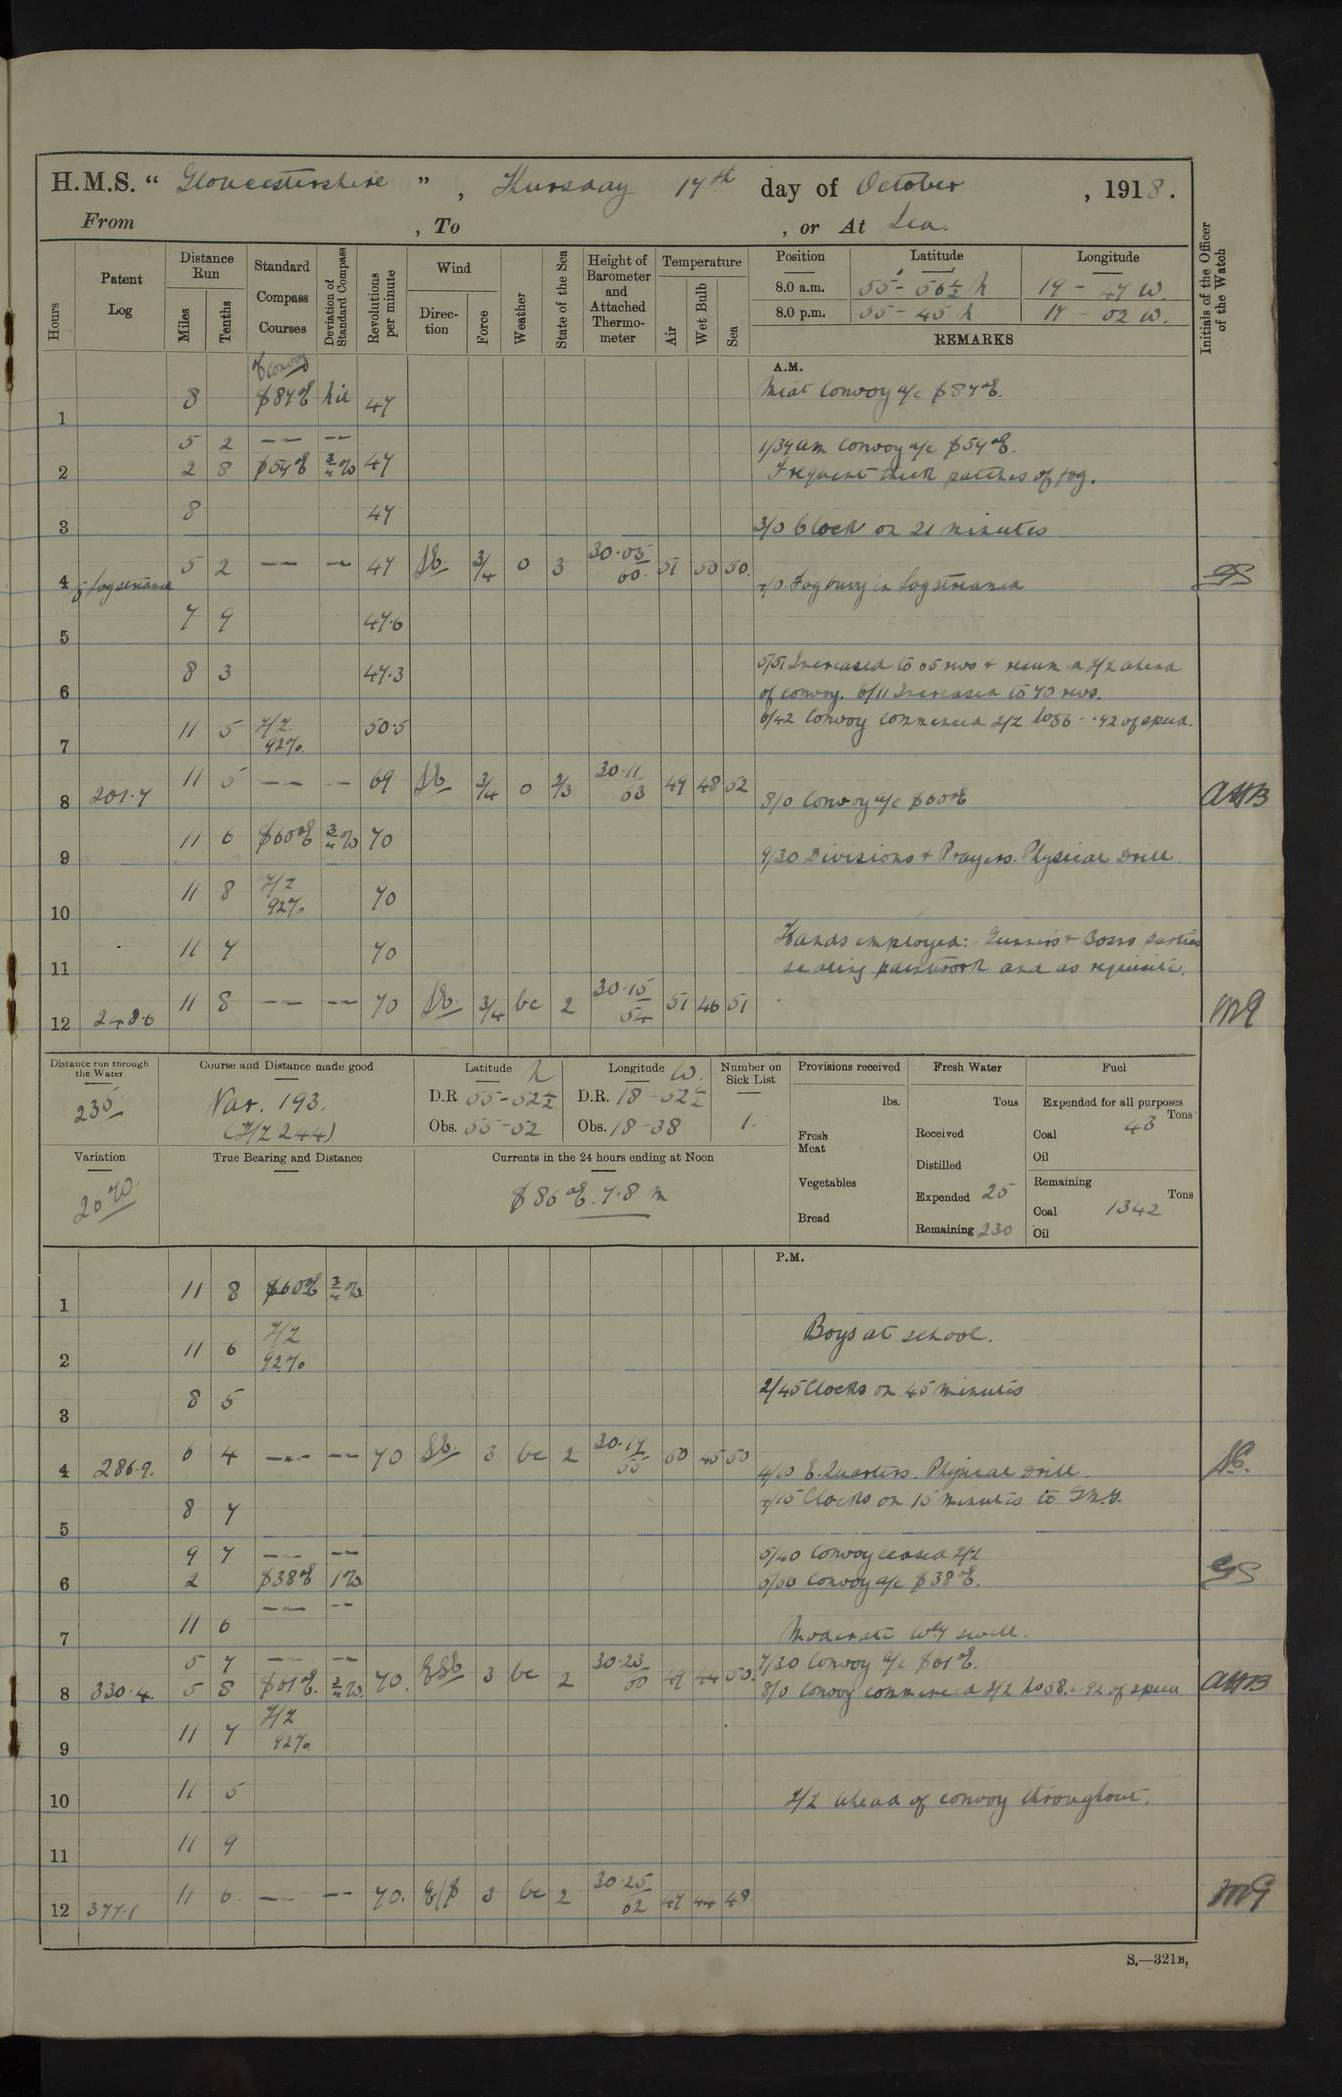 H.M.S. "Gloucestershire", Thursday 17th day of October, 1918.
From , To , or At Sea.
Hours
Patent Log
Distance Run
Miles
Tenths
Standard Compass Courses
Deviation of Standard Compass
Revolutions per minute
Wind
Direction
Force
Weather
State of the Sea
Height of Barometer and Attached Thermometer
Temperature
Air
Wet Bulb
Sea
Position Latitude Longitude
8.0 a.m. 55 - 56½ N 19 - 47 W.
8.0 p.m. 55 - 45 N 17 - 02 W.
REMARKS
Initials of the Officer of the Watch
A.M.
of convoy
1 8 S 87° E Nil 47 Convoy a/c S 87° E.
5 2 -- -- 1/39 am Convoy a/c S 54° E.
2 2 8 S 54° E ¾ W 47 Frequent thick patches of fog.
3 8 47 3/0 Clock on 21 minutes
4 5 2 -- -- 47 3/4 0 3 30.05 60. 51 50 50. 4/0 Fog buoy in Log streamed
5 7 9 47.6
6 8 3 47.3 5/51 Increased to 65 revs + resum d Z/Z ahead
of convoy. 6/11 Increased to 70 revs.
7 11 5 Z/Z 92% 50.5 6/42 Convoy commenced Z/Z No 56 = .92 of speed.
8 201.7 11 5 -- -- 69 3/4 0 2/3 30.11 53 49 48 52 8/0 Convoy a/c S 60° E AHB
9 11 6 S 60° E ¾ W 70 9/30 Divisions + Prayers. Physical Drill.
10 11 8 Z/Z 92% 70
11 11 7 70 Hands employed: Gunners + Bosns parties
paintwork and as requisite.
12 248.6 11 8 -- -- 70 3/4 bc 2 30.15 54 51 46 51
Distance run through the Water
235
Course and Distance made good
Var. 193.
(Z/Z 244)
Latitude N
D.R 55 - 52½
Obs. 55 - 52
Longitude W.
D.R. 18 - 52½
Obs. 18 - 38
Number on Sick List
1.
Provisions received
lbs.
Fresh Meat
Vegetables
Bread
Fresh Water
Tons
Received
Distilled
Expended 25
Remaining 230
Fuel
Expended for all purposes
Tons
Coal 43
Oil
Remaining
Tons
Coal 1342
Oil
Variation
20 W.
True Bearing and Distance
Currents in the 24 hours ending at Noon
S 86° E. 7.8 m
P.M.
1 11 8 S 60° E ¾ W
2 11 6 Z/Z 92% Boys at school.
3 8 5 2/45 Clocks on 45 minutes
4 286.9. 6 4 -- -- 70 3 bc 2 30.17 55 50 45 50 4/10 E. Quarters. Physical Drill.
4/15 Clocks on 15 minutes to G.M.T.
5 8 7
9 7 -- -- 5/40 Convoy ceased Z/Z
6 2 S 38° E 1 W 5/50 Convoy a/c S 38° E.
7 11 6 -- -- Moderate Wly swell.
5 7 -- -- 7/30 Convoy a/c S 61° E.
8 330.4. 5 8 S 61° E. ¾ W. 70. 3 bc 2 30.23 60 49 44 50. 8/0 Convoy commenced Z/Z No 58. = .92 of speed AHB
9 11 7 Z/Z 92%
10 11 5 Z/Z ahead of convoy throughout.
11 11 9
12 377.1 11 6 -- -- 70. E/S 3 bc 2 30.25 62 47 44 48
S.—321B.